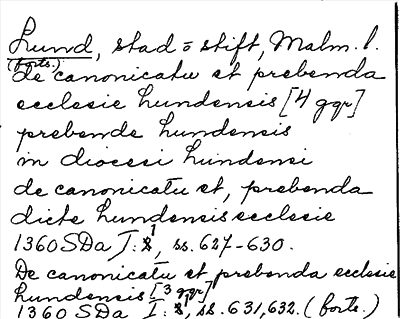 Lund, stad o stift, Malm. l.
(forts.)
de canonicatu et prebenda
ecclesie Lundensis [4 ggr]
prebende Lundensis
in diocesi Lundensi
de canonicatu et, prebenda
dicte Lundensis ecclesie
1360 SDa I:1, ss. 627-630.
De canonicatu et prebenda ecclesie
Lundensis [3 ggr]
1360 SDa I:1, ss. 631, 632. (forts.)